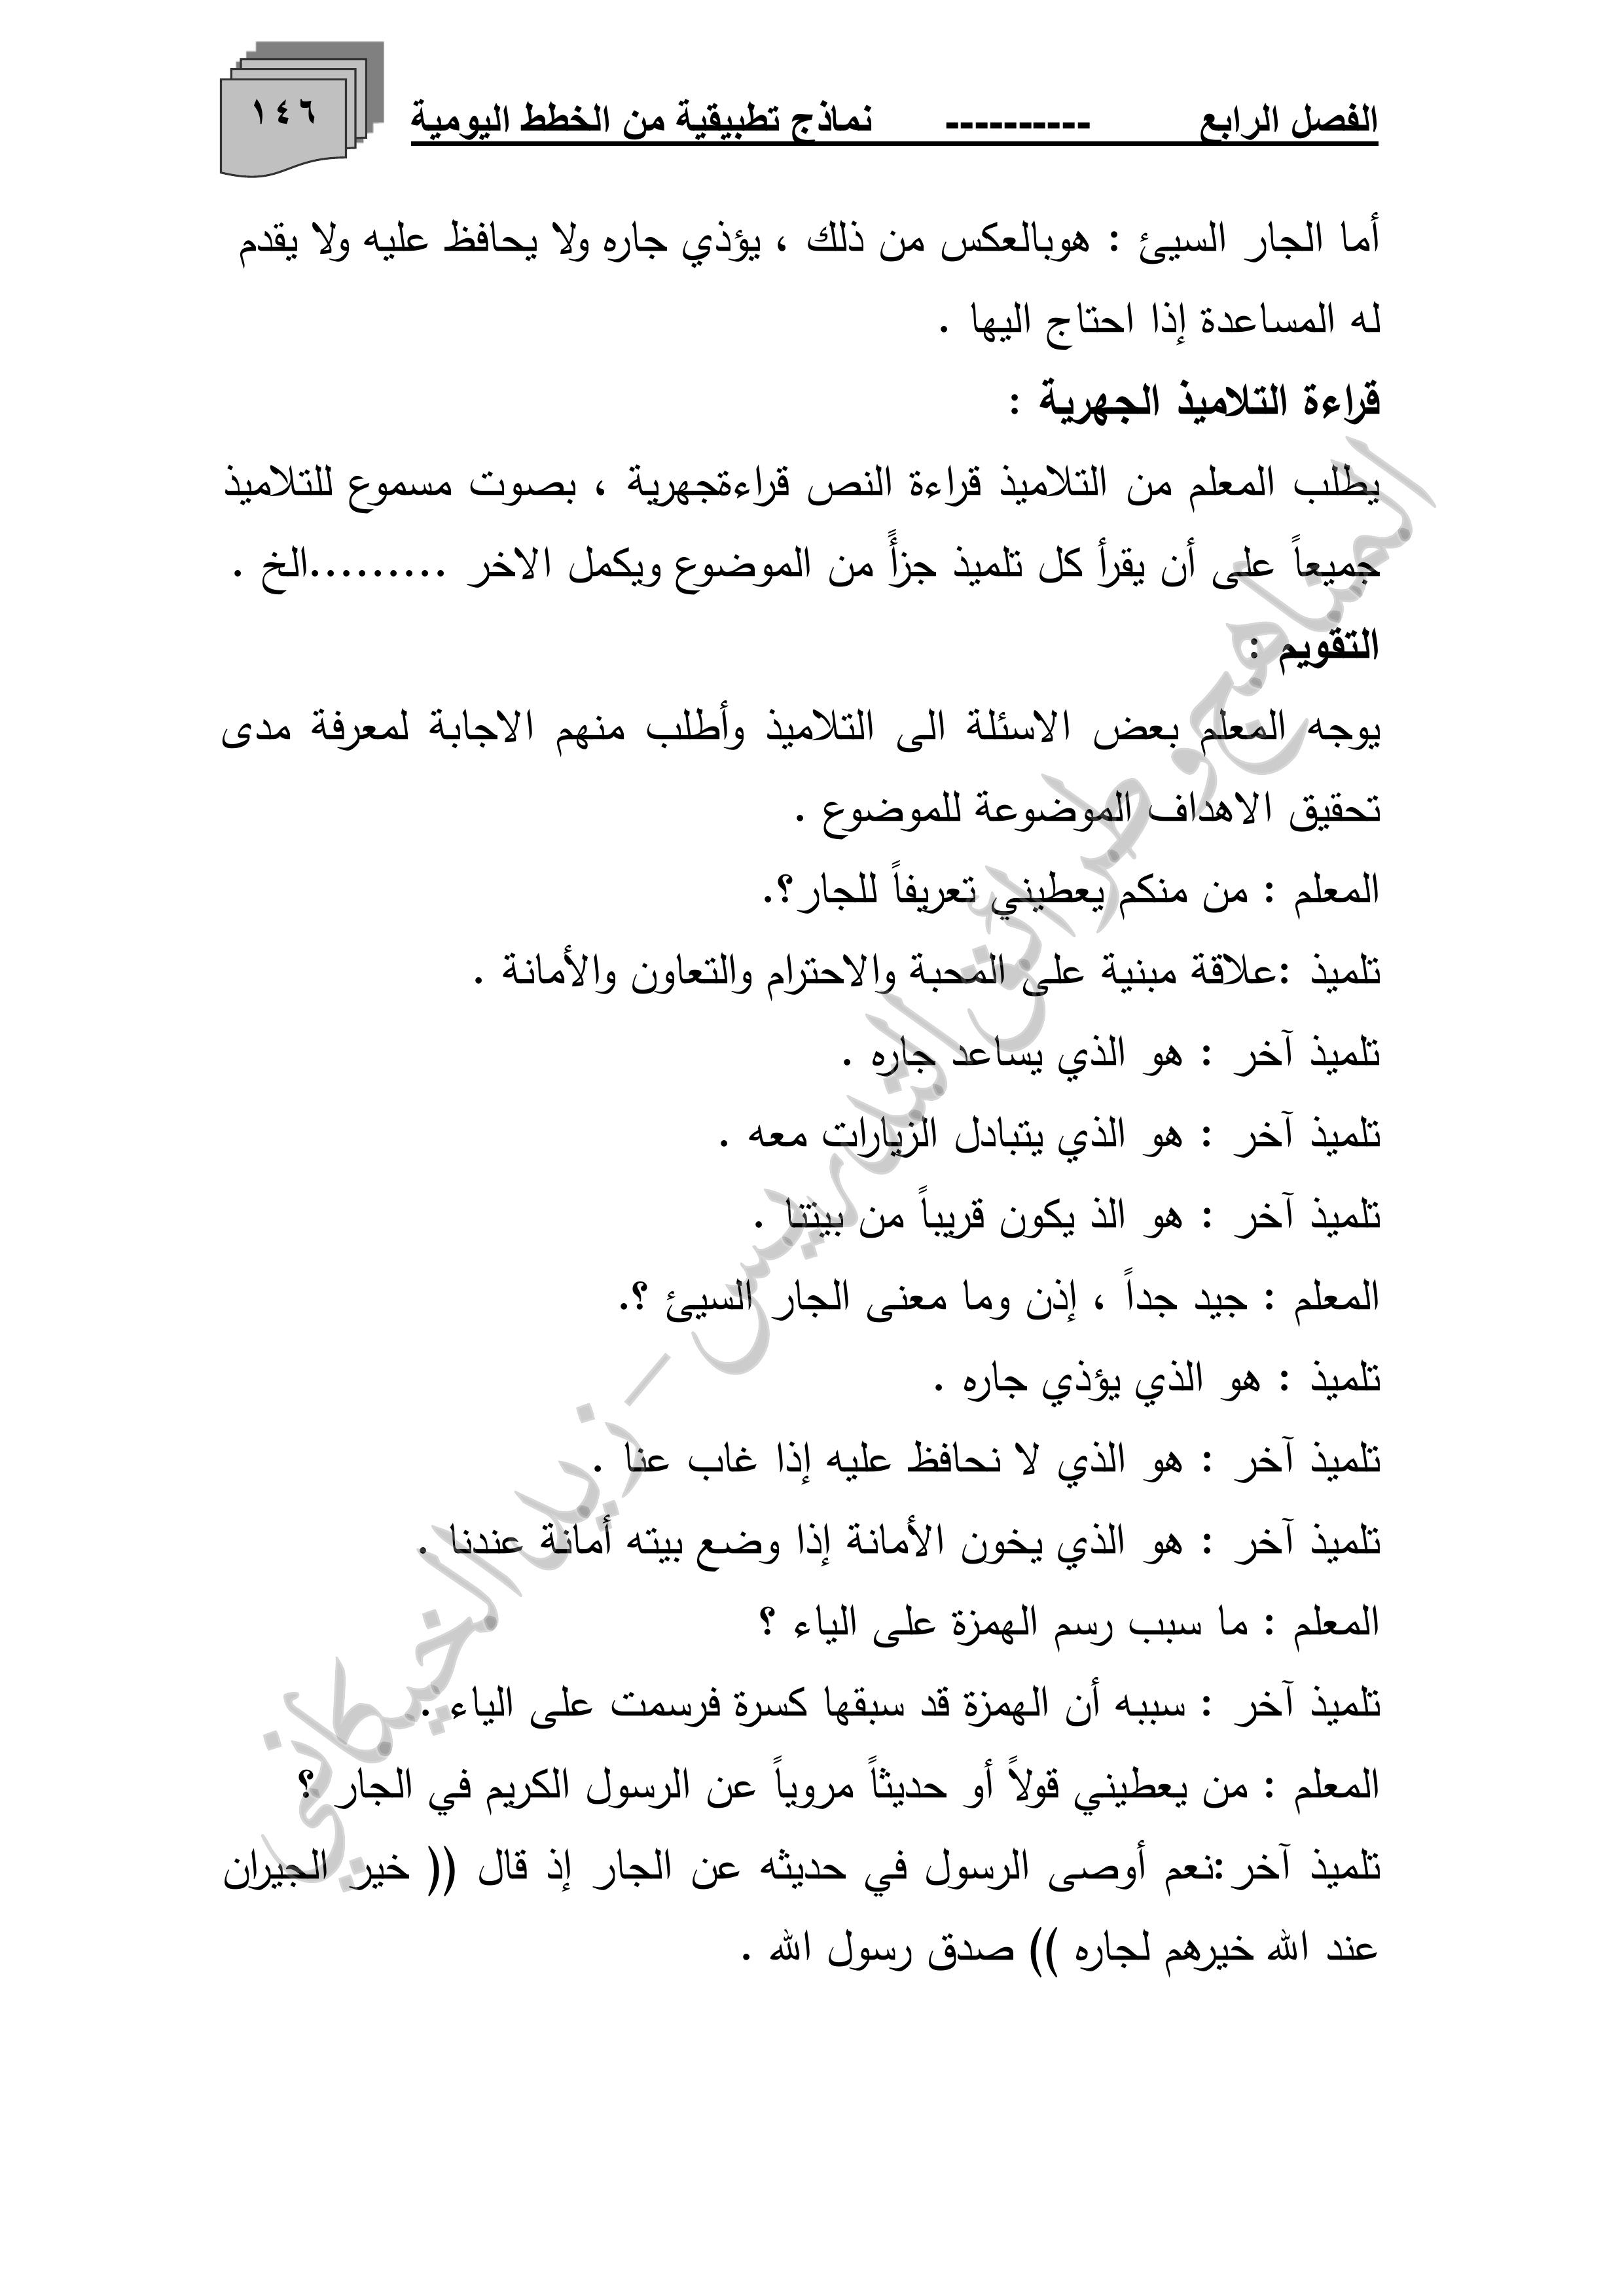 الفصل الرابع ---------- نماذج تطبيقية من الخطط اليومية
١٤٦
أما الجار السيئ : هوبالعكس من ذلك ، يؤذي جاره ولا يحافظ عليه ولا يقدم
له المساعدة إذا احتاج اليها .
قراءة التلاميذ الجهرية :
يطلب المعلم من التلاميذ قراءة النص قراءةجهرية ، بصوت مسموع للتلاميذ
جميعاً على أن يقرأ كل تلميذ جزأً من الموضوع ويكمل الاخر .........الخ .
التقويم :
يوجه المعلم بعض الاسئلة الى التلاميذ وأطلب منهم الاجابة لمعرفة مدى
تحقيق الاهداف الموضوعة للموضوع .
المعلم : من منكم يعطيني تعريفاً للجار؟.
تلميذ :علاقة مبنية على المحبة والاحترام والتعاون والأمانة .
تلميذ آخر : هو الذي يساعد جاره .
تلميذ آخر : هو الذي يتبادل الزيارات معه .
تلميذ آخر : هو الذ يكون قريباً من بيتنا .
المعلم : جيد جداً ، إذن وما معنى الجار السيئ ؟.
تلميذ : هو الذي يؤذي جاره .
تلميذ آخر : هو الذي لا نحافظ عليه إذا غاب عنا .
تلميذ آخر : هو الذي يخون الأمانة إذا وضع بيته أمانة عندنا .
المعلم : ما سبب رسم الهمزة على الياء ؟
تلميذ آخر : سببه أن الهمزة قد سبقها كسرة فرسمت على الياء .
المعلم : من يعطيني قولاً أو حديثاً مروياً عن الرسول الكريم في الجار ؟
تلميذ آخر:نعم أوصى الرسول في حديثه عن الجار إذ قال (( خير الجيران
عند الله خيرهم لجاره )) صدق رسول الله .
المناهج وطرائق التدريس - زيد الخيكاني